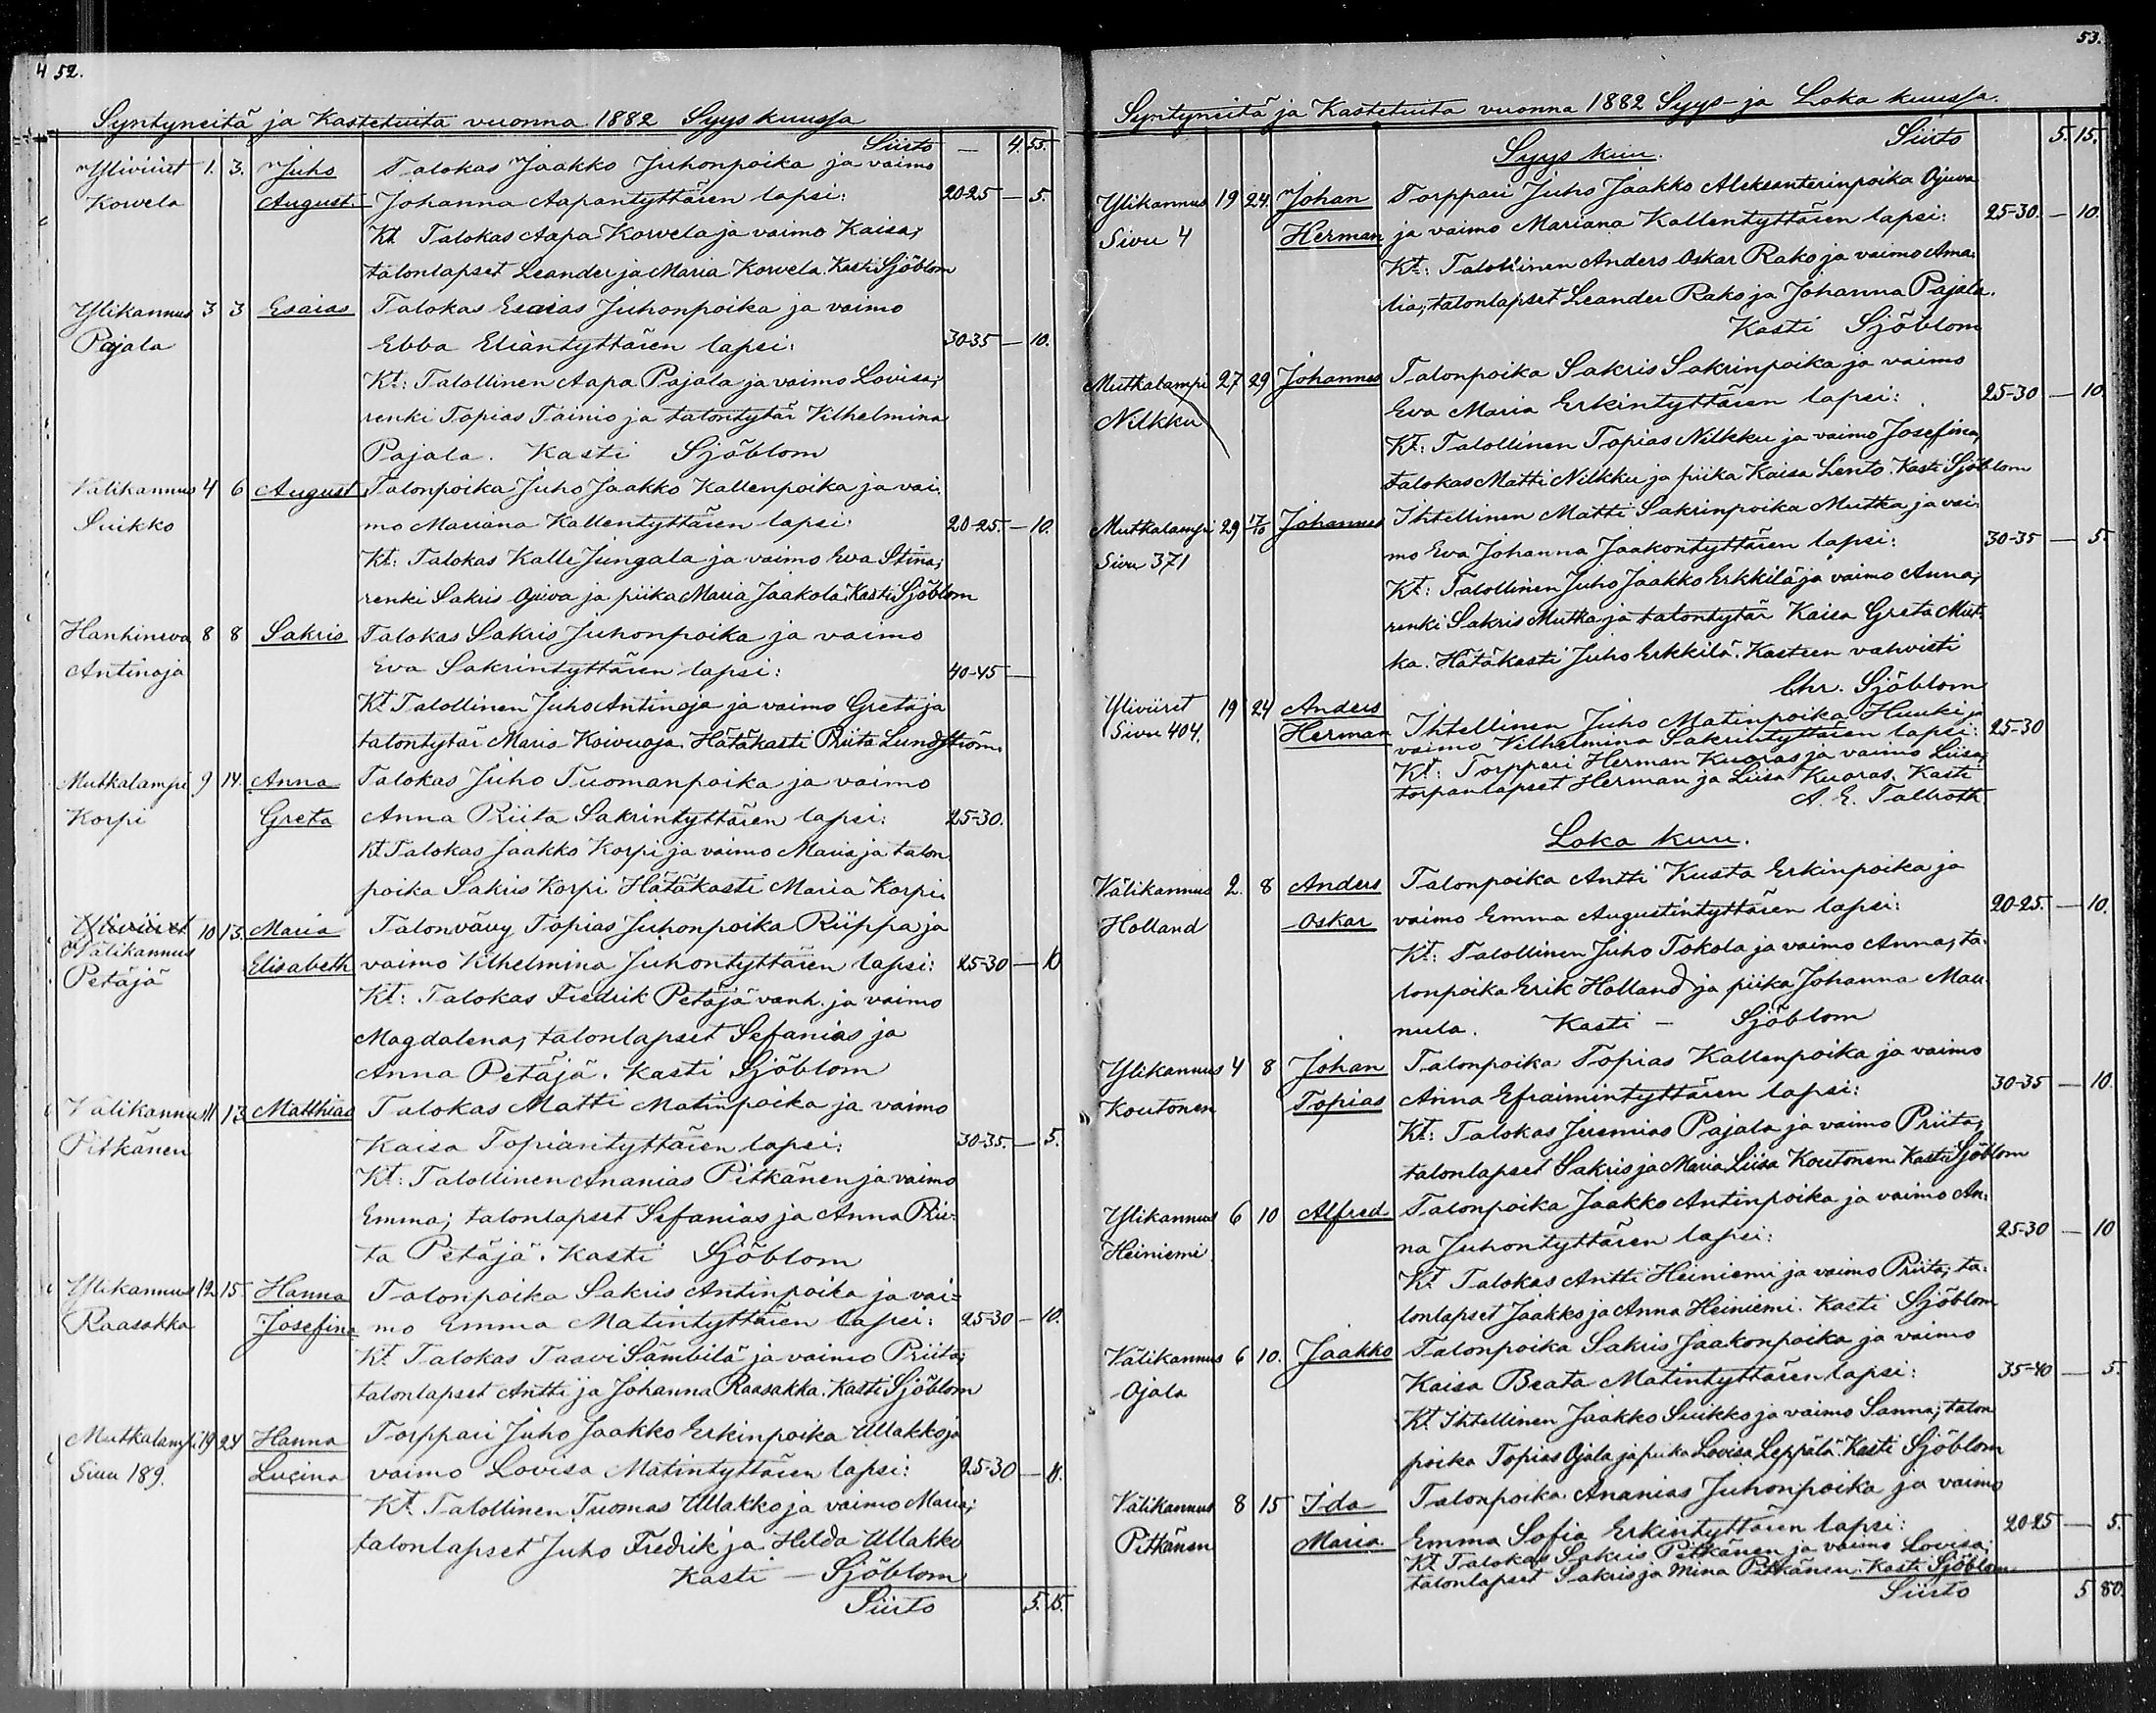 4 52.
Syntyneitä ja Kastetuita vuonna 1882 Syyskuussa
Siirto — 4. 55.
Yliviiret 1. 3. Juho Talokas Jaakko Juhonpoika ja vaimo
Korvela August Johanna Aapantyttären lapsi: 20-25 — 5.
Kt Talokas Aapa Korvela ja vaimo Kaisa;
talonlapset Leander ja Maria Korvela. Kasti Sjöblom
Ylikannus 3 3 Esaias Talokas Esaias Juhonpoika ja vaimo
Pajala Ebba Eliantyttären lapsi: 30-35 — 10.
Kt: Talollinen Aapa Pajala ja vaimo Lovisa;
renki Topias Tainio ja talontytär Vilhelmina
Pajala. Kasti Sjöblom
Välikannus 4 6 August Talonpoika Juho Jaakko Kallenpoika ja vai-
Suikko mo Mariana Kallentyttären lapsi: 20-25. — 10.
Kt: Talokas Kalle Jungala ja vaimo Eva Stina;
renki Sakris Ojuva ja piika Maria Jaakola. Kasti Sjöblom
Hanhineva 8 8 Sakris Talokas Sakris Juhonpoika ja vaimo
Antinoja Eva Sakrintyttären lapsi: 40-45 —
Kt Talollinen Juho Antinoja ja vaimo Greta ja
talontytär Maria Koivuoja. Hätäkasti Priita Lundström
Mutkalampi 9 14. Anna Talokas Juho Tuomanpoika ja vaimo
Korpi Greta Anna Riita Sakrintyttären lapsi: 25-30.
Kt Talokas Jaakko Korpi ja vaimo Maria ja talon-
poika Sakris Korpi Hätäkasti Maria Korpi.
Yliviiret 10 13. Maria Talonvävy Topias Juhonpoika Riippa ja
Välikannus Elisabeth vaimo Vilhelmina Juhontyttären lapsi: 25-30 — 10
Petäjä Kt: Talokas Fredrik Petäjä vanh. ja vaimo
Magdalena; talonlapset Sefanias ja
Anna Petäjä. Kasti Sjöblom
Välikannus 11 13 Matthias Talokas Matti Matinpoika ja vaimo
Pitkänen Kaisa Topiantyttären lapsi: 30-35. — 5.
Kt: Talollinen Ananias Pitkänen ja vaimo
Emma; talonlapset Sefanias ja Anna Prii-
ta Petäjä. Kasti Sjöblom
Ylikannus 12 15. Hanna Talonpoika Sakris Antinpoika ja vai=
Raasakka Josefina mo Emma Matintyttären lapsi: 25-30 — 10.
Kt Talokas Taavi Sämbilä ja vaimo Priita;
talonlapset Antti ja Johanna Raasakka. Kasti Sjöblom
Mutkalampi 19 24 Hanna Torppari Juho Jaakko Erkinpoika Ullakko ja
Sivu 189. Lucina vaimo Lovisa Matintyttären lapsi: 25-30 —
Kt. Talollinen Tuomas Ullakko ja vaimo Maria;
talonlapset Juho Fredrik ja Hilda Ullakko
Kasti — Sjöblom
Siirto 5. 15.
53.
Syntyneitä ja Kastetuita vuonna 1882 Syys- ja Loka kuussa.
Syys kuu. Siirto 5. 15.
Ylikannus 19 24. Johan Torppari Juho Jaakko Aleksanterinpoika Ojuva
Sivu 4 Herman ja vaimo Mariana Kallentyttären lapsi: 25-30. — 10.
Kt: Talollinen Anders Oskar Rako ja vaimo Ama-
lia; talonlapset Leander Rako ja Johanna Pajala.
Kasti Sjöblom
Mutkalampi 27 29 Johannes Talonpoika Sakris Sakrinpoika ja vaimo
Nilkku Eva Maria Erkintyttären lapsi: 25-30 — 10.
Kt: Talollinen Topias Nilkku ja vaimo Josefina;
talokas Matti Nilkku ja piika Kaisa Lento. Kasti Sjöblom
Mutkalampi 29 17/10 Johannes Ihtellinen Matti Sakrinpoika Mutka ja vai-
Sivu 371 mo Eva Johanna Jaakontyttären lapsi: 30-35 — 5.
Kt: Talollinen Juho Jaakko Erkkilä ja vaimo Anna;
renki Sakris Mutka ja talontytär Kaisa Greta Mut-
ka. Hätäkasti Juho Erkkilä. Kasteen vahvisti
Chr. Sjöblom
Yliviiret 19 24 Anders Ihtellinen Juho Matinpoika Huuki ja
Sivu 404. Herman vaimo Vilhelmina Sakrintyttären lapsi: 25-30
Kt: Torppari Herman Kuoras ja vaimo Liisa;
torpanlapset Herman ja Liisa Kuoras. Kasti
A. E. Tallroth
Loka kuu.
Välikannus 2. 8 Anders Talonpoika Antti Kusta Erkinpoika ja
Holland Oskar vaimo Emma Augustintyttären lapsi: 20-25. — 10.
Kt: Talollinen Juho Tokola ja vaimo Anna; ta-
lonpoika Erik Holland ja piika Johanna Mau-
nula. Kasti — Sjöblom
Ylikannus 4 8 Johan Talonpoika Topias Kallenpoika ja vaimo
Koutonen Topias Anna Efraimintyttären lapsi: 30-35 — 10.
Kt: Talokas Jeremias Pajala ja vaimo Priita;
talonlapset Sakris ja Maria Liisa Koutonen Kasti Sjöblom
Ylikannus 6 10 Alfred Talonpoika Jaakko Antinpoika ja vaimo An-
Heiniemi na Juhontyttären lapsi: 25-30 — 10
Kt Talokas Antti Heiniemi ja vaimo Priita; ta-
lonlapset Jaakko ja Anna Heiniemi. Kasti Sjöblom
Välikannus 6 10. Jaakko Talonpoika Sakris Jaakonpoika ja vaimo
Ojala Kaisa Beata Matintyttären lapsi: 35-40 — 5.
Kt Ihtellinen Jaakko Suikko ja vaimo Sanna; talon
poika Topias Ojala ja piika Lovisa Leppälä. Kasti Sjöblom
Välikannus 8 15 Ida Talonpoika Ananias Juhonpoika ja vaimo
Pitkänen Maria Emma Sofia Erkintyttären lapsi: 20-25 — 5.
Kt Talokas Sakris Pitkänen ja vaimo Lovisa;
talonlapset Sakris ja Mina Pitkänen. Kasti Sjöblom
Siirto 5 80.